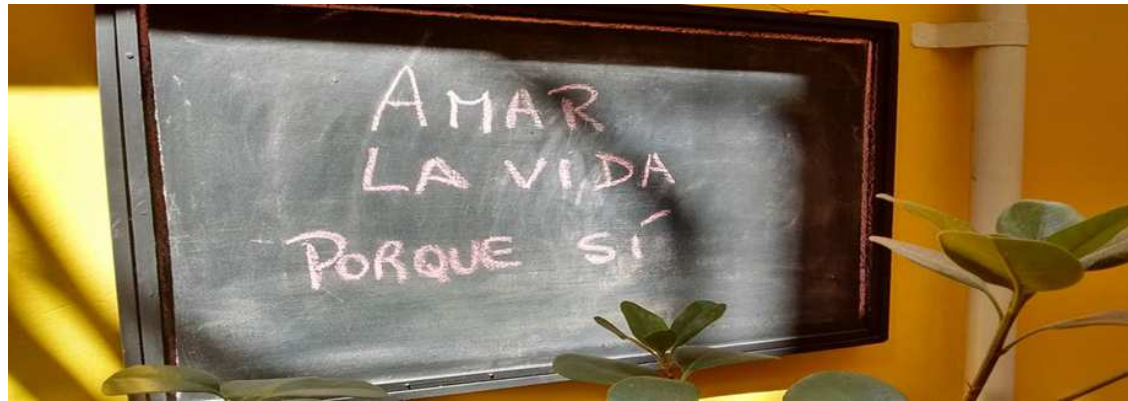 AMAR
LA VIDA
PORQUE SÍ